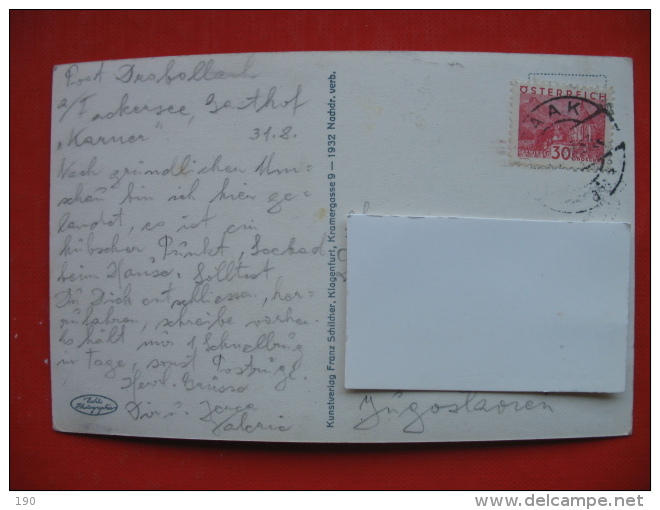 Post Drobollach
a/Faakersee, Gasthof
"Karner" 31.8.
Nach gründlichem Um=
schau bin ich hier ge=
landet, es ist ein
hübscher Punkt, Seebad
beim Hause. Solltest
Du Dich entschliessen, her=
zufahren, schreibe vorher.
Es hält nur 1 Schnellzug
im Tage, sonst
Herzl. Grüsse
Dir u.
Valerie
Echte Photographie
Kunstverlag Franz Schilcher, Klagenfurt, Kramergasse 9 — 1932 Nachdr. verb.
ÖSTERREICH
30
Jugoslavien
190
delcampe.net